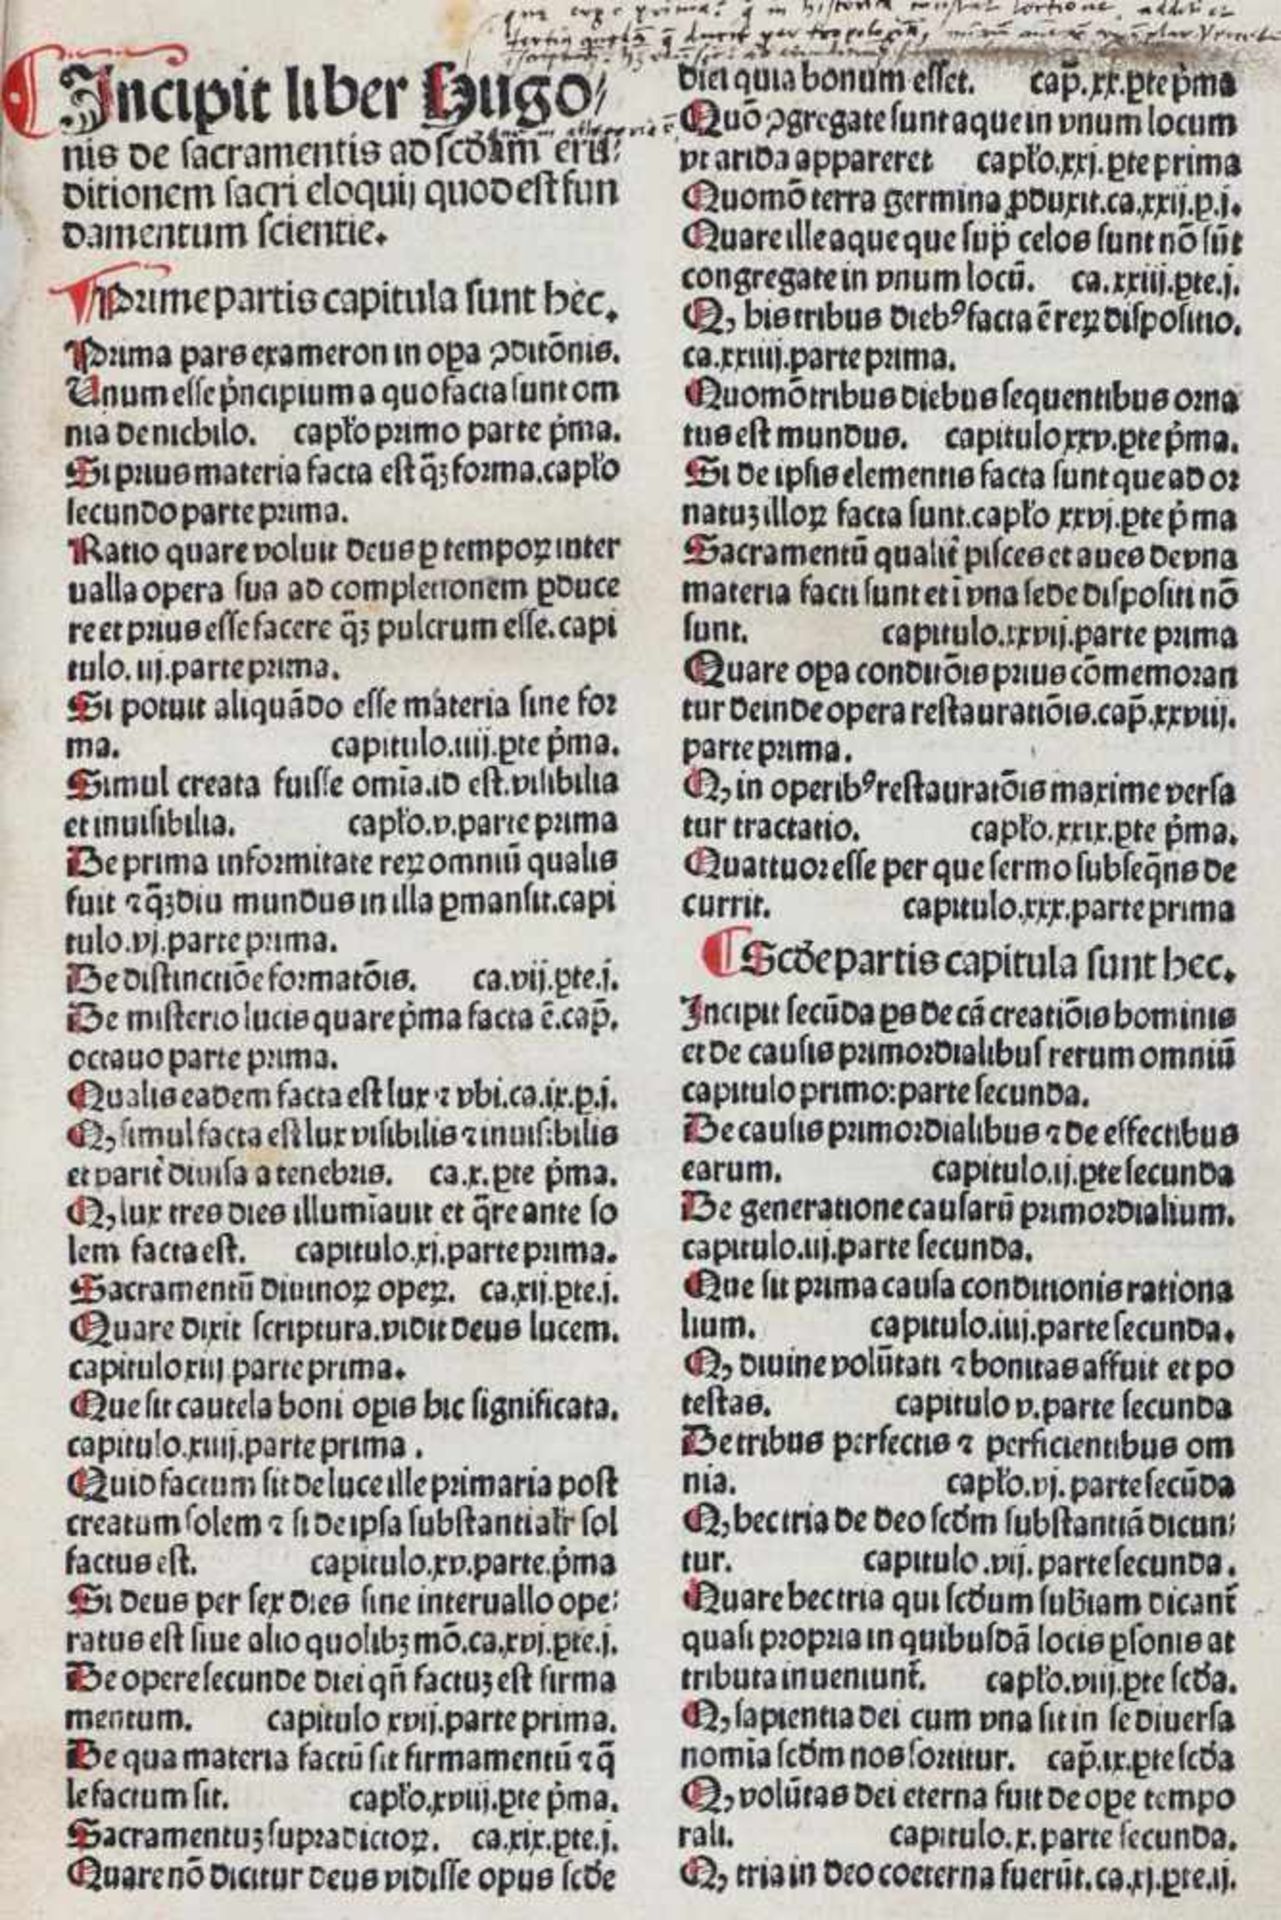 Incipit liber Hugo/
nis de sacramentis ad scđam eru:
ditionem sacri eloquij quod est fun
damentum scientie.
Prime partis capitula sunt hec.
Prima pars exameron in opa ꝯditōnis.
Unum esse pͥncipium a quo facta sunt om
nia de nichilo. capło primo parte pͥma.
Si prius materia facta est q̄ꝫ forma.capło
secundo parte prima.
Ratio quare voluit deus ꝑ tempoꝝ inter
ualla opera sua ad completionem ꝓduce
re et prius esse facere q̄ꝫ pulcrum esse.capi
tulo.iij.parte prima.
Si potuit aliquādo esse materia sine for
ma. capitulo.iiij.ꝑte pͥma.
Simul creata fuisse omīa.id est.visibilia
et inuisibilia. capło.v.parte prima
De prima informitate reꝝ omniū qualis
fuit ⁊ q̄ꝫdiu mundus in illa ꝑmansit.capi
tulo.vj.parte prima.
De distinctiōe formatōis. ca.vij.ꝑte.j.
De misterio lucis quare pͥma facta ē.cap̄.
octauo parte prima.
Qualis eadem facta est lux ⁊ vbi.ca.ix.p.j.
Q, simul facta est lux visibilis ⁊ inuisibilis
et parit̄ diuisa a tenebris. ca.x.ꝑte pͥma.
Q, lux tres dies illumīauit et q̄re ante so
lem facta est. capitulo.xj.parte prima.
Sacramentū diuinoꝝ opeꝝ. ca.xij.ꝑte.j.
Quare dixit scriptura.vidit deus lucem.
capitulo xiij parte prima.
Que sit cautela boni opis hic significata.
capitulo.xiiij.parte prima .
Quid factum sit de luce ille primaria post
creatum solem ⁊ si de ipsa substantialr̄ sol
factus est. capitulo.xv.parte.pͥma
Si deus per sex dies sine interuallo ope:
ratus est siue alio quolibꝫ mō.ca.xvj.ꝑte.j.
De opere secunde diei qn̄ factuꝫ est firma
mentum. capitulo xvij.parte prima.
De qua materia factū sit firmamentū ⁊ q̄
le factum sit. capło.xviij.ꝑte pͥma.
Sacramentuꝫ supradictoꝝ. ca.xix.ꝑte.j.
Quare nō dicitur deus vidisse opus scđe
diei quia bonum esset. cap̄.xx.ꝑte pͥma
Quō ꝯgregate sunt aque in vnum locum
vt arida appareret capło.xxj.ꝑte prima
Quomō terra germina ꝓduxit.ca.xxij.p.j.
Quare ille aque que sup̄ celos sunt nō sūt
congregate in vnum locū. ca.xxiij.ꝑte.j.
Q, his tribus dieb⁹ facta ē reꝝ dispositio.
ca.xxiiij.parte prima.
Quomō tribus diebus sequentibus orna
tus est mundus. capitulo xxv.ꝑte pͥma.
Si de ipsis elementis facta sunt que ad or
natuꝫ illoꝝ facta sunt.capło xxvj.ꝑte pͥma
Sacramentū qualit̄ pisces et aues de vna
materia facti sunt et ī vna sede dispositi nō
sunt. capitulo.xxvij.parte prima
Quare opa conditōis prius cōmemoran
tur deinde opera restauratiōis.cap̄.xxviij.
parte prima.
Q, in operib⁹ restauratōis maxime versa
tur tractatio. capło.xxix.ꝑte pͥma.
Quattuor esse per que sermo subseq̄ns de
currit. capitulo.xxx.parte prima
Scđe partis capitula sunt hec.
Incipit secūda ꝑs de cā creatiōis hominis
et de causis primordialibus rerum omniū
capitulo primo:parte secunda.
De causis primordialibus ⁊ de effectibus
earum. capitulo.ij.ꝑte secunda
De generatione causarū primordialium.
capitulo.iij.parte secunda.
Que sit prima causa conditionis rationa
lium. capitulo.iiij.parte secunda.
Q, diuine volūtati ⁊ bonitas affuit et po
testas. capitulo v.parte secunda
De tribus perfectis ⁊ perficientibus om
nia. capło.vj.parte secūda
Q, hec tria de deo scđm substantiā dicun:
tur. capitulo .vij. parte secunda.
Quare hec tria qui scđum sub̄iam dicant̄
quasi propria in quibusdā locis ꝑsonis at
tributa inueniunt̄. capło.viij.ꝑte scđa.
Q, sapientia dei cum vna sit in se diuersa
nomīa scđm nos sortitur. cap̄.ix.ꝑte scđa
Q, volūtas dei eterna fuit de ope tempo
rali. capitulo.x.parte secunda.
Q, tria in deo coeterna fuerūt.ca.xj.ꝑte.ij.